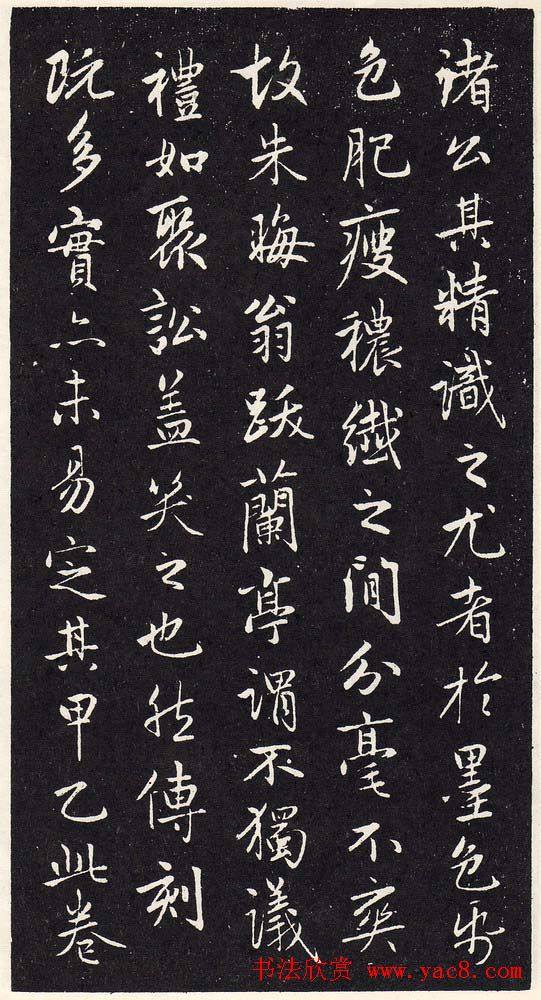 諸公其精識之尤者於墨色帋
色肥瘦穠纖之間分毫不爽
故朱晦翁跋蘭亭謂不獨議
禮如聚訟盖笑之也然傳刻
既多實亦未易定其甲乙此卷
书法欣赏 www.yac8.com